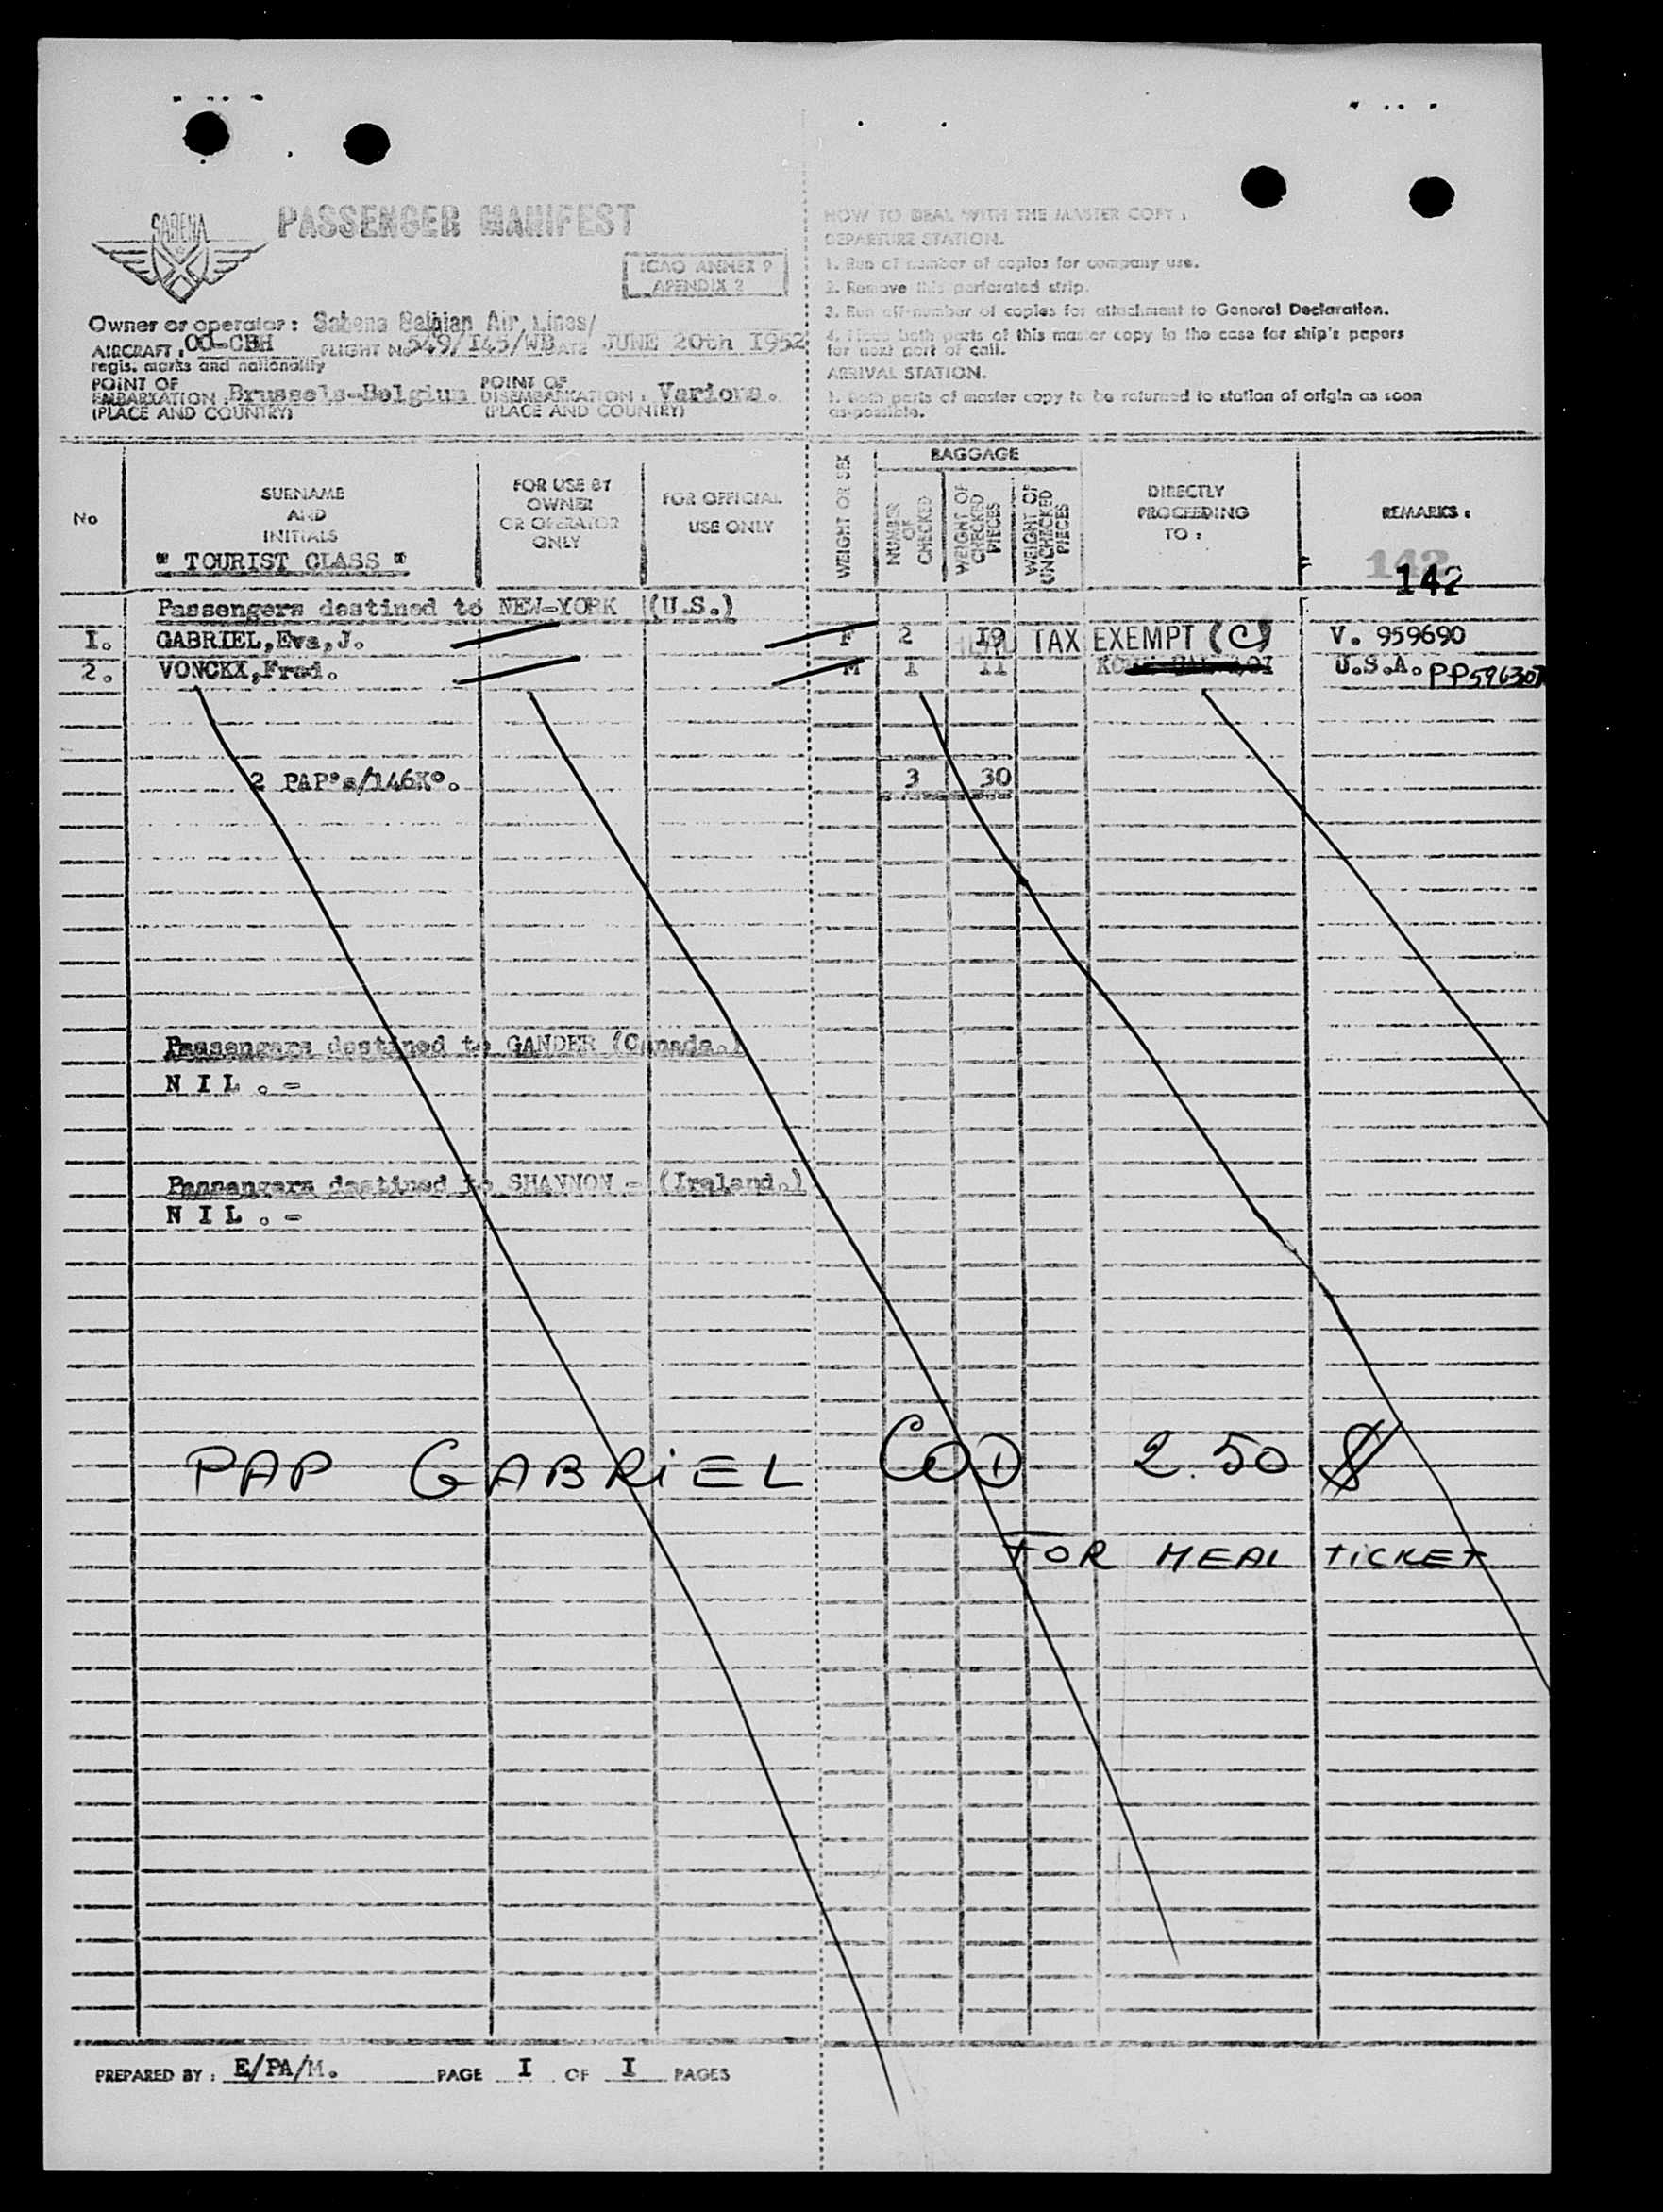 SABENA
PASSENGER MANIFEST
ICAO ANNEX 9
APENDIX 2
Owner or operator : Sabena Belgian Air Lines/
AIRCRAFT : OO-CBH FLIGHT No 549/145/WB DATE JUNE 20th 1952
regis. marks and nationality
POINT OF EMBARKATION : Brussels-Belgium POINT OF DISEMBARKATION : Varions.
(PLACE AND COUNTRY) (PLACE AND COUNTRY)
HOW TO DEAL WITH THE MASTER COPY :
DEPARTURE STATION.
1. Run of number of copies for company use.
2. Remove this perforated strip.
3. Run off number of copies for attachment to General Declaration.
4. both parts of this master copy in the case for ship's papers
for next port of call.
ARRIVAL STATION.
1. Both parts of master copy to be returned to station of origin as soon
as possible.
No
SURNAME
AND
INITIALS
" TOURIST CLASS "
FOR USE BY
OWNER
OR OPERATOR
ONLY
FOR OFFICIAL
USE ONLY
WEIGHT OR SEX
BAGGAGE
NUMBER OF CHECKED
WEIGHT OF CHECKED PIECES
WEIGHT OF UNCHECKED PIECES
DIRECTLY
PROCEEDING
TO :
REMARKS :
142
142
Passengers destined to NEW-YORK (U.S.)
1. GABRIEL,Eva,J. F 2 19 TAX EXEMPT (C) V. 959690
2. VONCKX,Fred. M 1 11 U.S.A. PP596307
2 PAP's/146K°. 3 30
Passengers destined to GANDER (Canada.)
N I L . =
Passengers destined to SHANNON = (Ireland.)
N I L . =
PAP GABRIEL COD 2.50 $
FOR MEAL TICKET
PREPARED BY : E/PA/M. PAGE I OF I PAGES